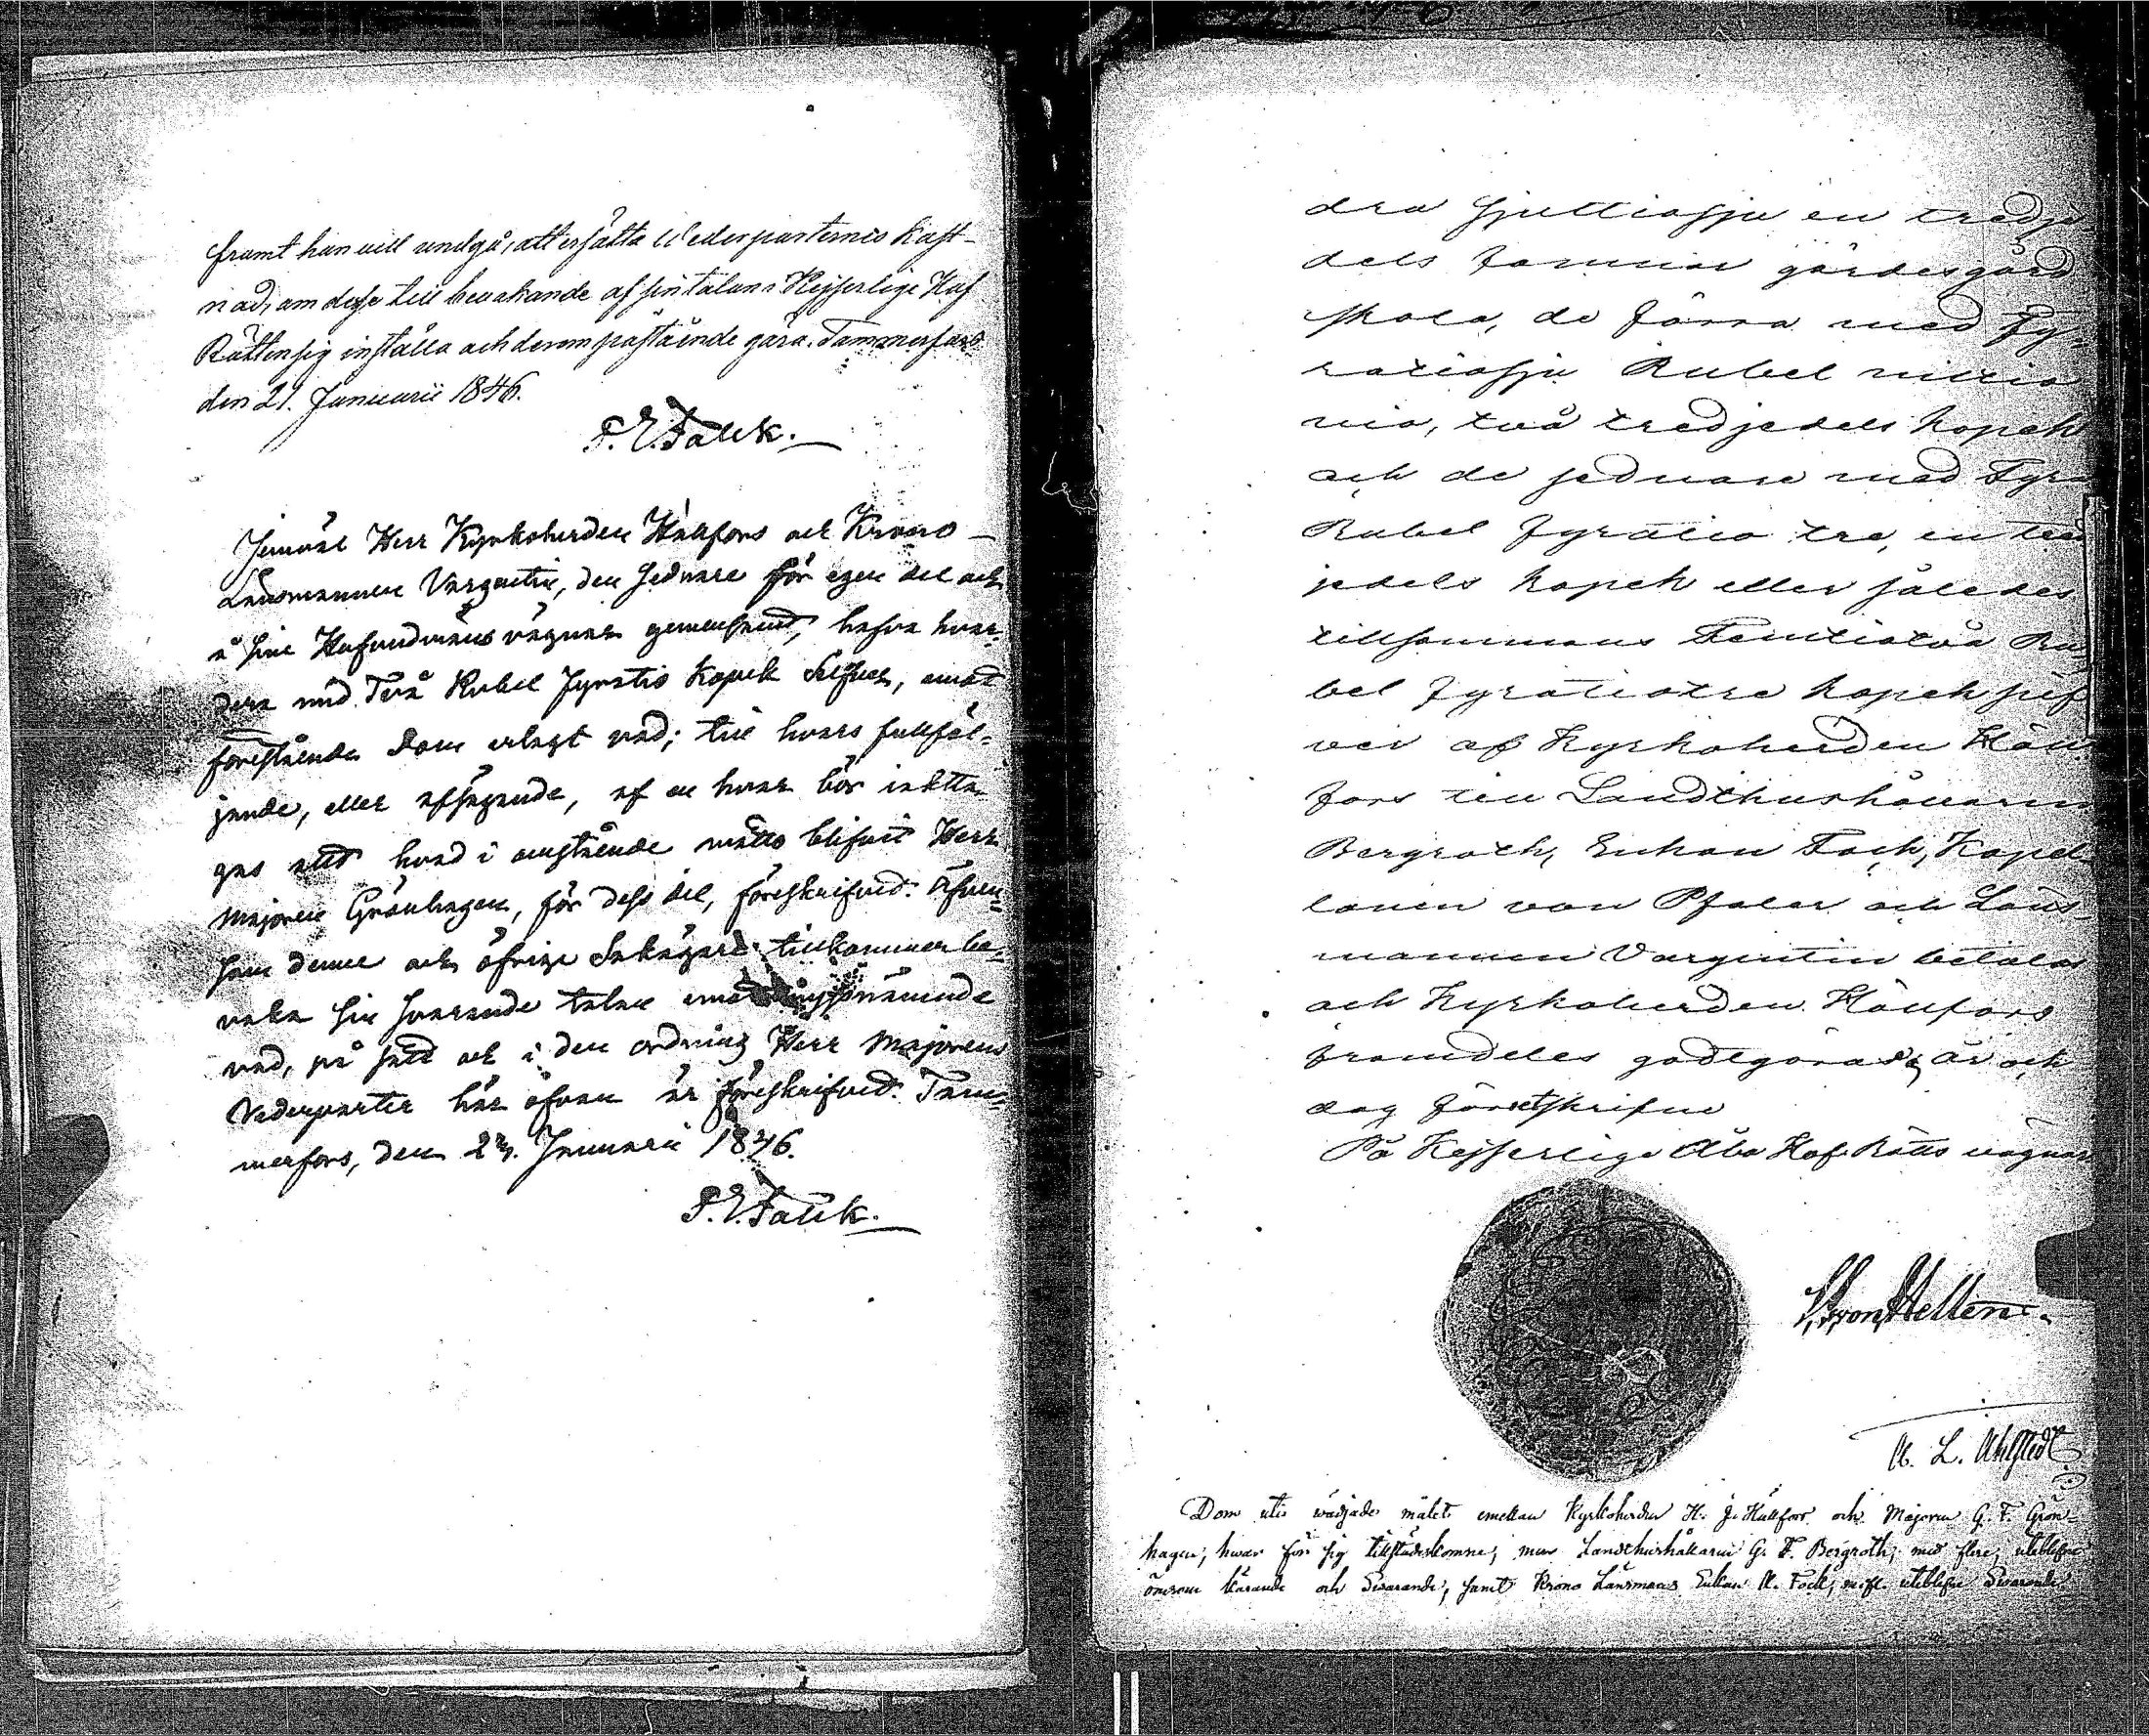 framt han vill undgå, att ersätta Wederparternes kost-
nad, om desse till bevakande af sin talan i Kejserlige Hof
Rätten sig inställa och derom påstående göra. Tammerfors
den 21. Januarii 1846.
F. E. Falck.
Jemväl Herr Kyrkoherden Hällfors och Krono-
Länsmannen Vargentin, den sednare för egen del och
å sine Hufvudmäns vägnar gemensamt, hafva hvar-
dera med Två Rubel fyratio kopek Silfver, emot
förestående Dom erlagt vad; till hvars fullföl-
jande, eller afsägande, af en hvar bör iaktta-
gas allt hvad i omstående måtto blifvit Herr
Majoren Grönhagen, för dess del, föreskrifvet. Äfven-
som denne och öfrige Sakägare tillkommer be-
vaka sin svarande talan emot nyssnämnde
vad, på sätt och i den ordning Herr Majorens
Vederparter här ofvan är föreskrifvet. Tam-
merfors, den 23. Januarii 1846.
F. E. Falck.
dra sjuttiosju en tredje-
dels famnar gärdesgård
skola, de förra med Fy-
ratiosju Rubel nittio
nio, två tredjedels kopek
och de sednare med Fyra
Rubel fyratio tre, en tred
jedels kopek eller således
tillsammans Femtiotvå Ru-
bel fyratiotre kopek silf
ver af Kyrkoherden Häll-
fors till Landthushållaren
Bergroth, Enkan Fock, Kapel-
lanen von Pfaler och Läns-
mannen Vargentin betalas
och Kyrkoherden Hällfors
framdeles godtgöras, år och
dag förutskrifne
På Kejserlige Åbo Hof Rätts vägnar
von Hellens.
A. L. Ahlstedt
Dom uti vädjade målet emellan Kyrkoherden H. J. Hällfors och Majoren G. F. Grön-
hagen, hvar för sig tillstädeskomne, men Landthushållaren G. F. Bergroth, med flere, uteblifne
ömsom Kärande och Svarande, samt Krono Länsmans Enkan A. Fock, m.fl. uteblifne Svarande